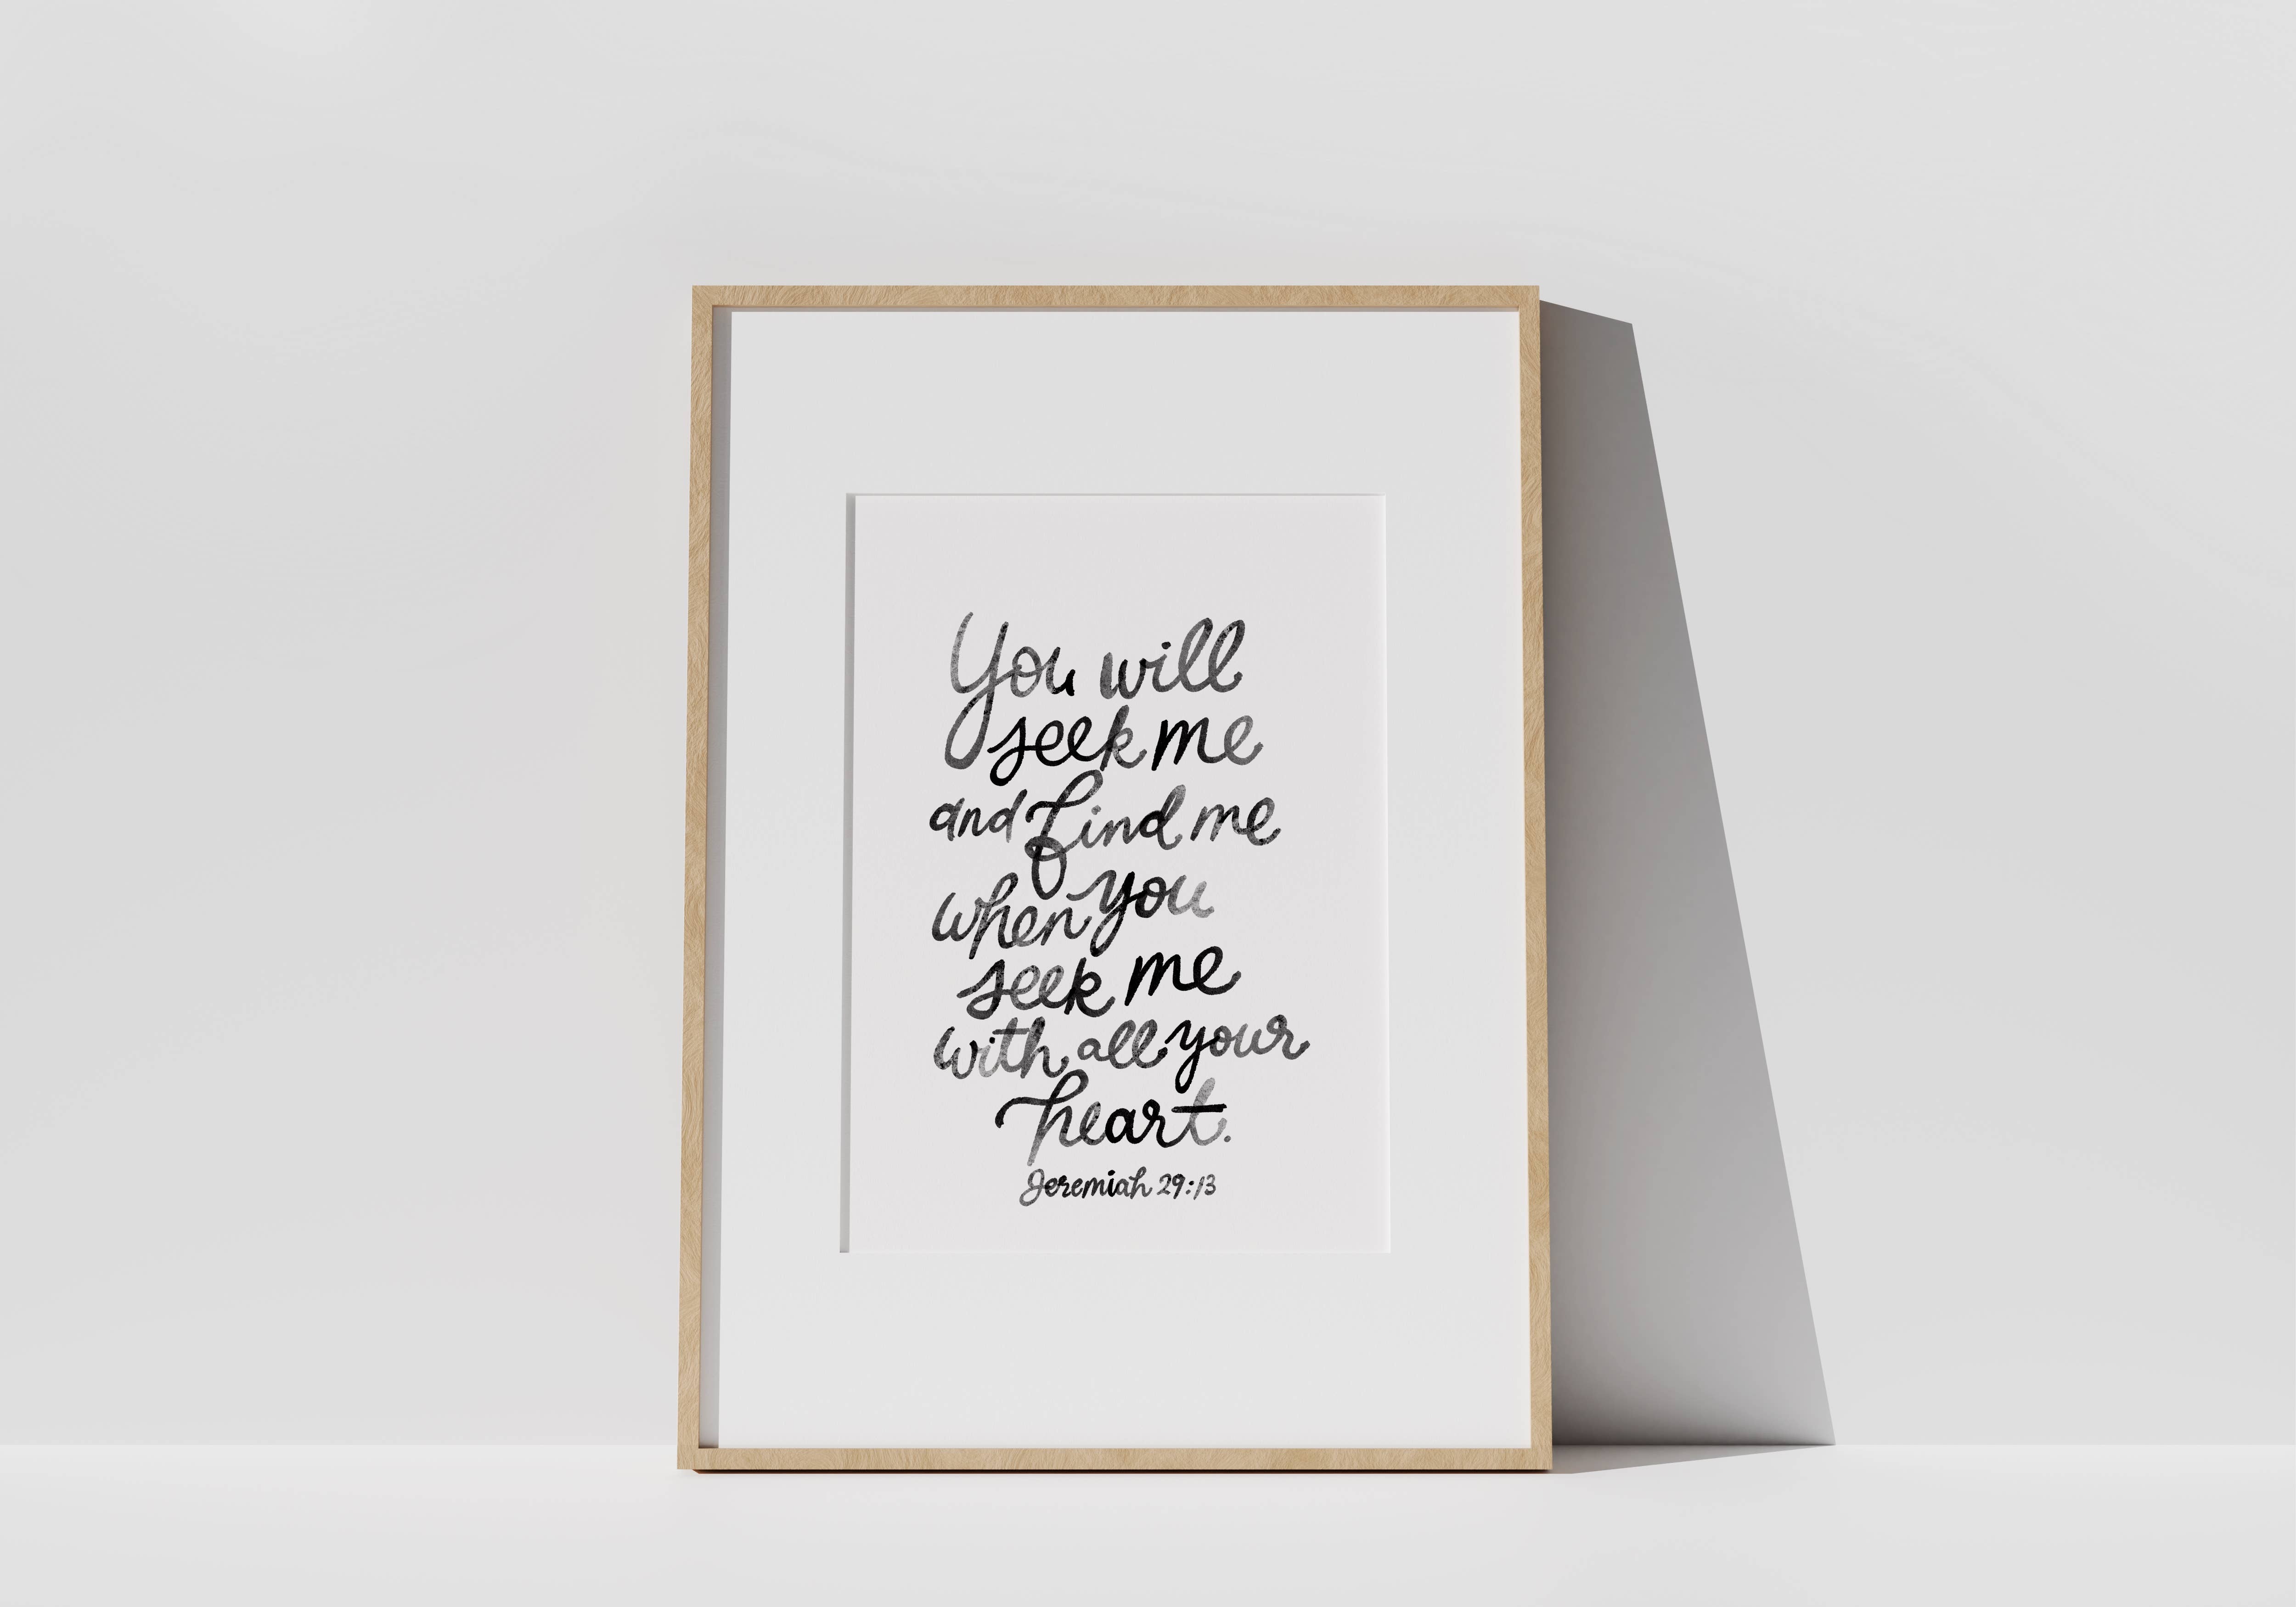 You will
seek me
and find me
when you
seek me
with all your
heart.
Jeremiah 29:13